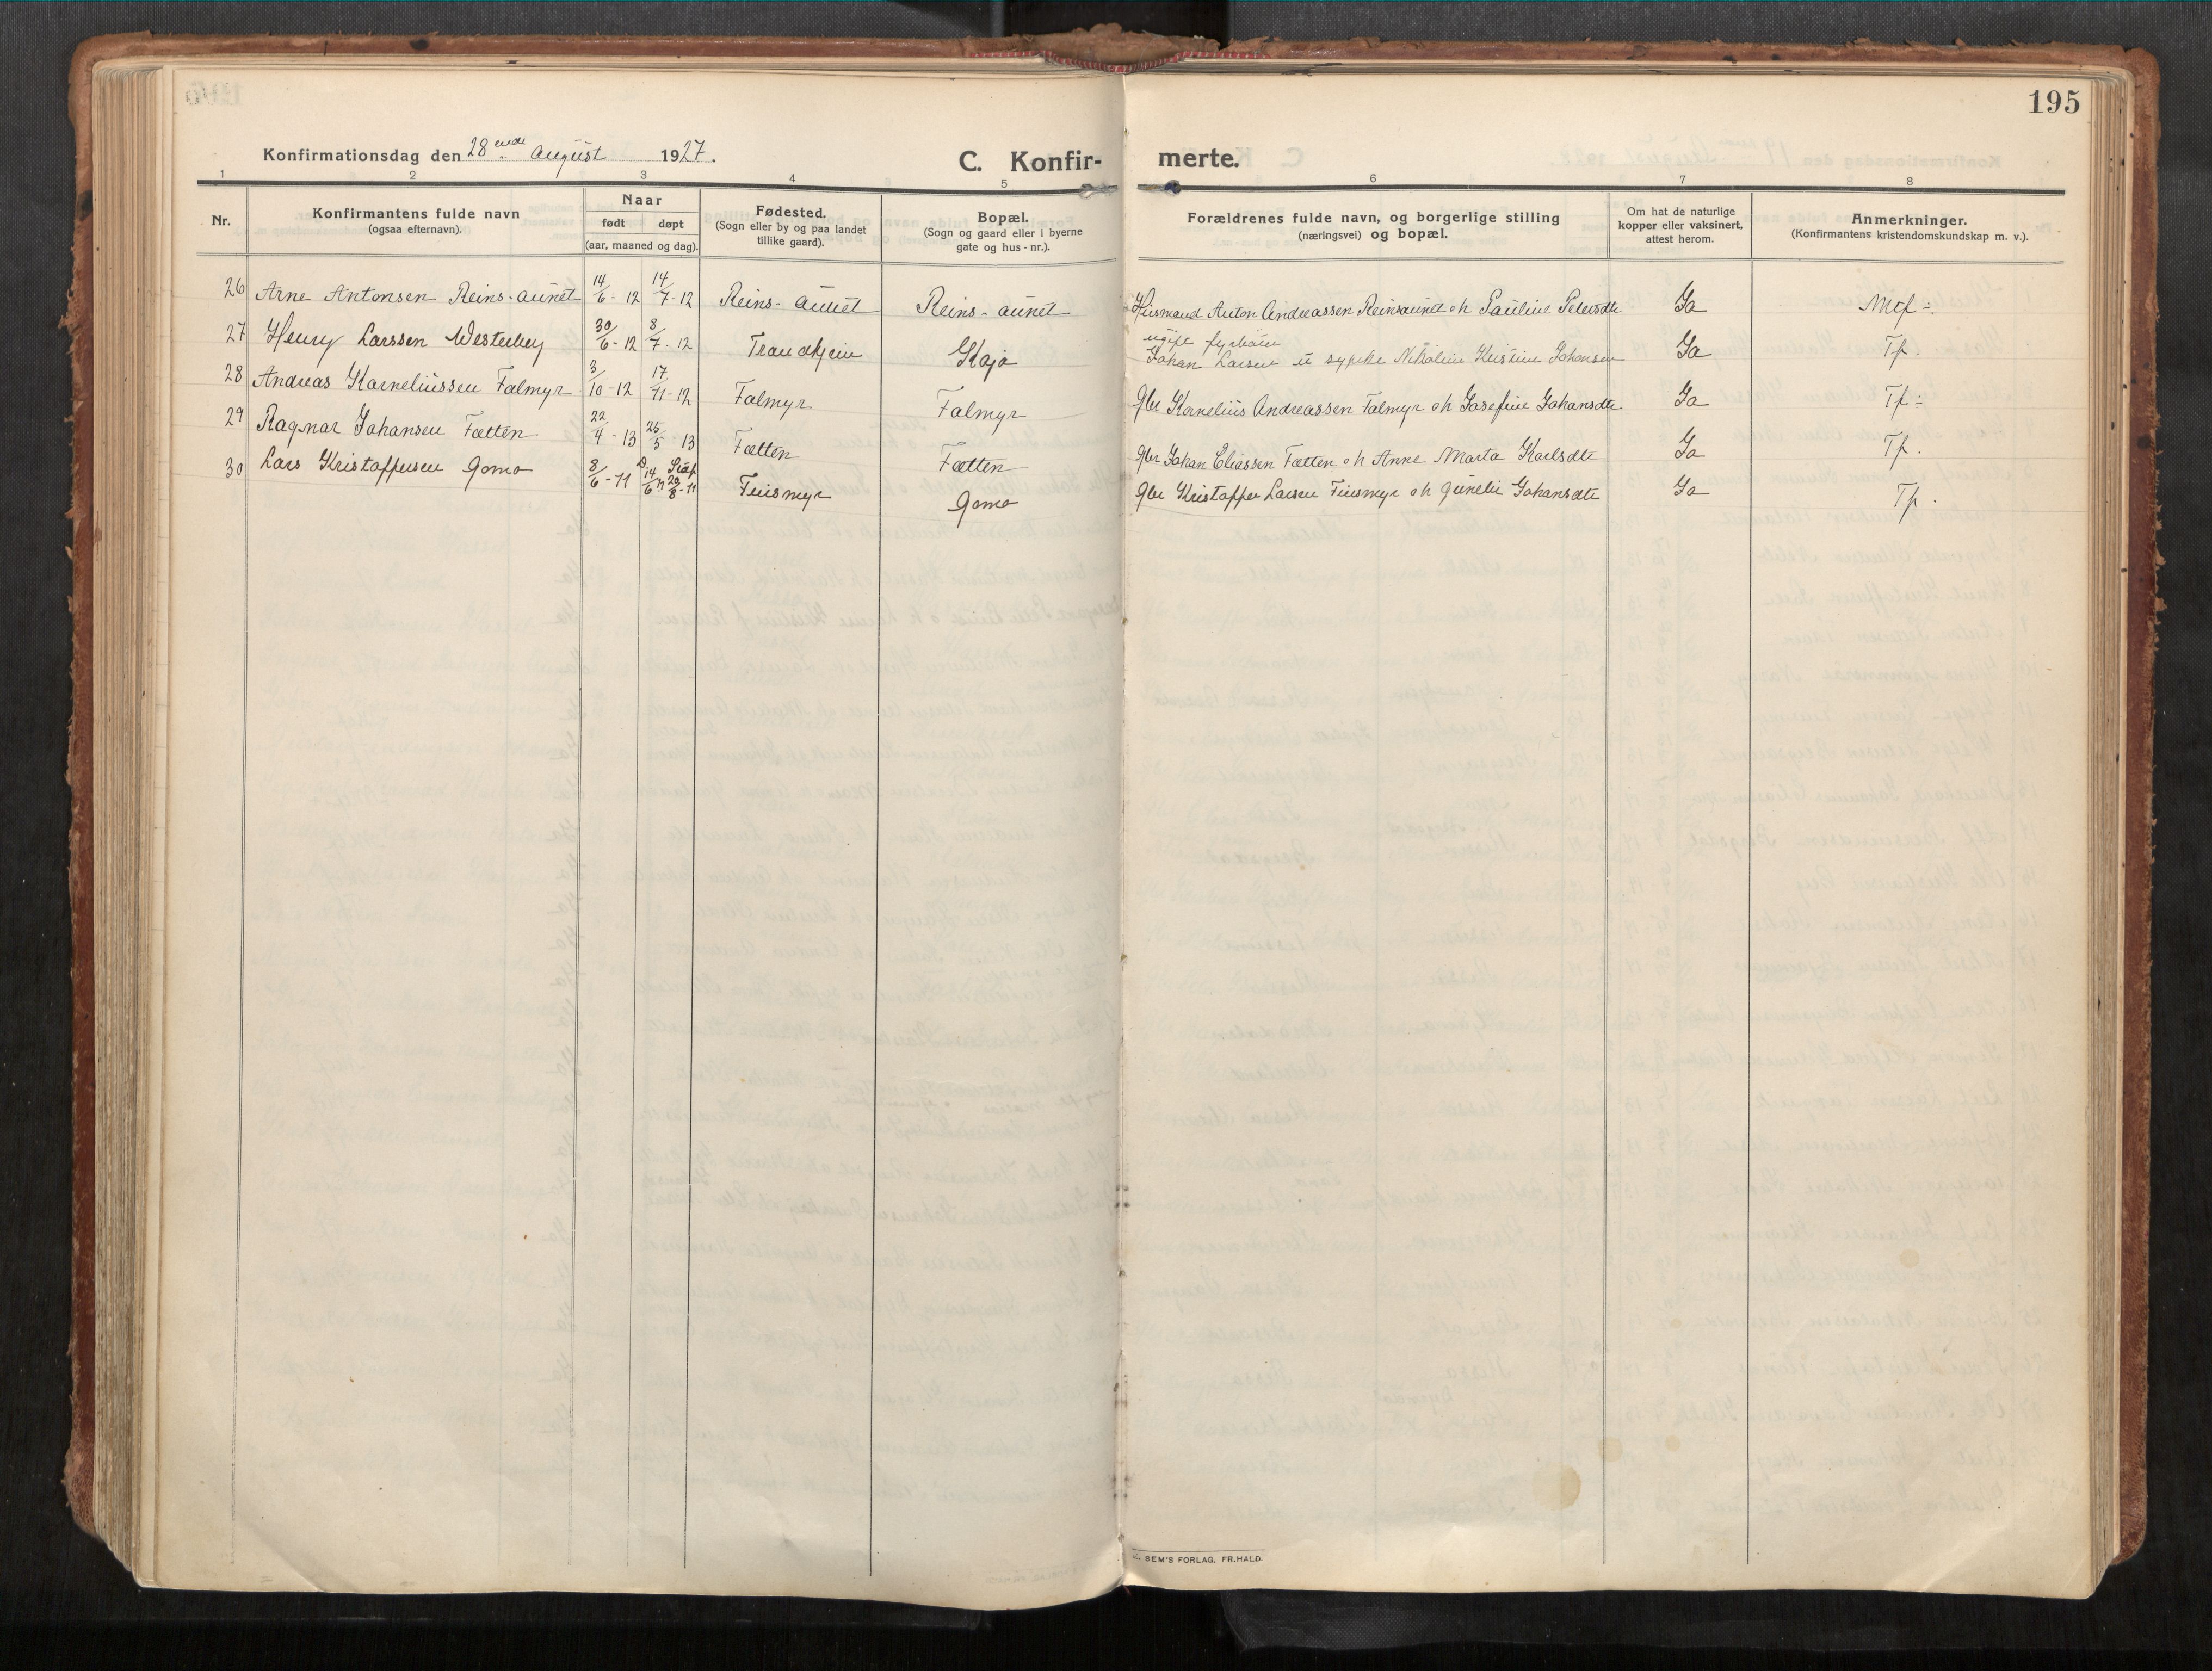 195
Konfirmationsdag den 28 ende August 1927.
C. Konfir- merte.
1 2 3 4 5 6 7 8
Nr.
Konfirmantens fulde navn
(ogsaa efternavn).
Naar
født døpt
(aar, maaned og dag).
Fødested.
(Sogn eller by og paa landet
tillike gaard).
Bopæl.
(Sogn og gaard eller i byerne
gate og hus-nr.).
Forældrenes fulde navn, og borgerlige stilling
(næringsvei) og bopæl.
Om hat de naturlige
kopper eller vaksinert,
attest herom.
Anmerkninger.
(Konfirmantens kristendomskundskap m. v.).
26 Arne Antonsen Reins-aunet 14/6-12 14/7-12 Reins-aunet Reins-aunet Husmand Anton Andreassen Reinsaunet o h Pauline Petersdtr Ja Mtf
27 Henry Larssen Westerbey 30/6-12 8/7-12 Trondhjem Kajo ugift fyrbøter
Johan Larsen u sypike Nikoline Kristine Johansen Ja Tf.
28 Andreas Korneliussen Falmyr 3/10-12 17/11-12 Falmyr Falmyr gbr Kornelius Andreassen Falmyr o h Josefine Johansdtr Ja Tf
29 Ragnar Johansen Fætten 22/4-13 25/5-13 Fætten Fætten gbr Johan Eliassen Fætten o h Anne Marta Karlsdtr Ja Tf.
30 Lars Kristoffersen Gomo 8/6-11 D. 14/6 11 Stadf 20/8-11 Finsmyr Gomo gbr Kristoffer Larsen Finsmyr o h Gunelie Johansdtr Ja Tf.
SEM'S FORLAG. FR.HALD.